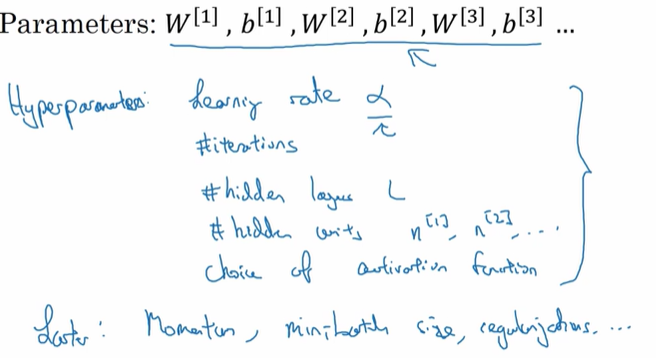 Parameters: W[1] , b[1] , W[2] , b[2] , W[3] , b[3] ...
Hyperparameters: Learning rate α
#iterations
#hidden layers L
# hidden units n[1], n[2], ....
Choice of activation function
Later: Momentum, minibatch size, regularizations, ...